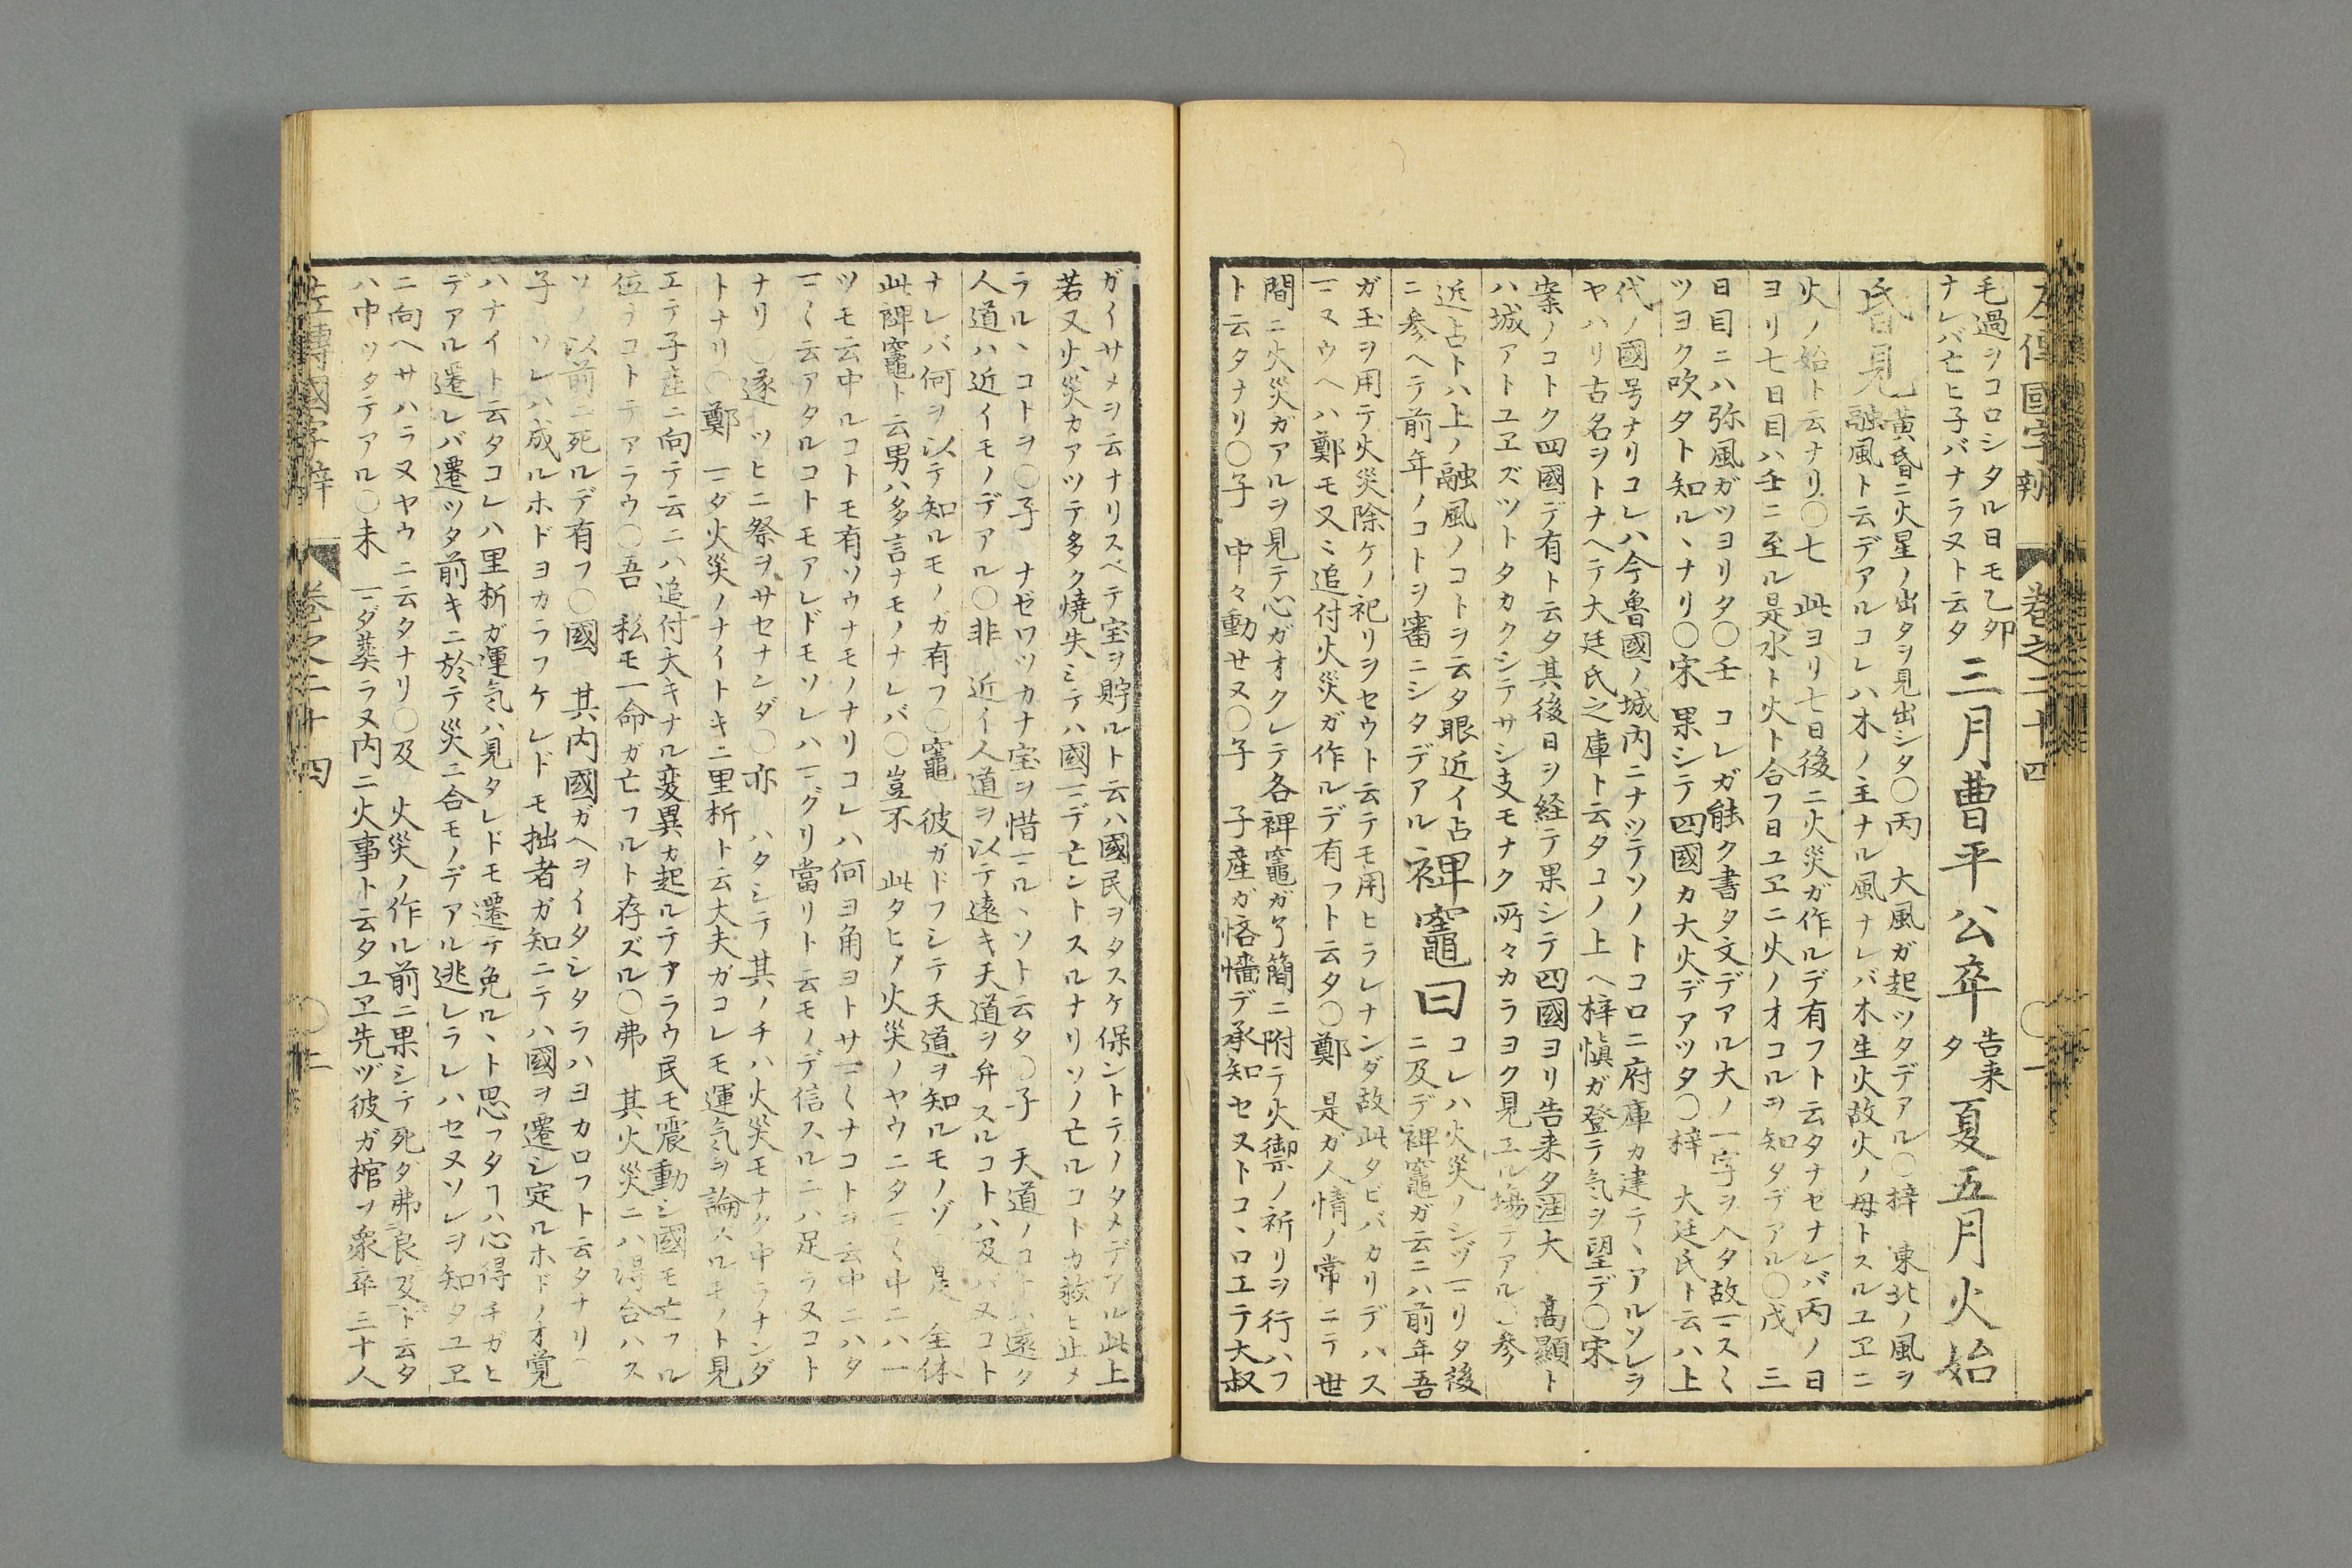 左傳國字辨 卷之二十四 〇一
毛過ヲコロシタル日モ乙夘
ナレバ亡ヒ子バナラヌト云タ
三月曹平公卒
告来
タ
夏五月火始
昏見
黄昏ニ火星ノ出タヲ見出シタ〇丙 大風ガ起ツタデアル〇梓 東北ノ風ヲ
融風ト云デアルコレハ木ノ主ナル風ナレバ木生火故火ノ母トスルユヱニ
火ノ始ト云ナリ〇七 此ヨリ七日後ニ火災ガ作ルデ有フト云タナゼナレバ丙ノ日
ヨリ七日目ハ壬ニ至ル是水ト火ト合フ日ユヱニ火ノオコルヲ知タデアル〇戊 三
日目ニハ弥風ガツヨリタ〇壬 コレガ能ク書タ文デアル大ノ一字ヲヘタ故マスく
ツヨク吹タト知ルヽナリ〇宋 果シテ四國カ大火デアツタ〇梓 大廷氏ト云ハ上
代ノ國号ナリコレハ今魯國ノ城内ニナツテソノトコロニ府庫カ建テヽアルソレラ
ヤハリ古名ヲトナヘテ大廷氏之庫ト云タコノ上ヘ梓愼ガ登テ気ヲ望デ〇宋
案ノコトク四國デ有ト云タ其後日ヲ経テ果シテ四國ヨリ告来タ注大 髙顯ト
ハ城アトユヱズツトタカクシテサシ支モナク所々カラヨク見エル場テアル〇参
近占トハ上ノ融風ノコトヲ云タ眼近イ占
ニ参ヘテ前年ノコトヲ審ニシタデアル
裨竈曰
コレハ火災ノシヅマリタ後
ニ及デ裨竈ガ云ニハ前年吾
ガ玉ヲ用テ火災除ケノ祀リヲセウト云テモ用ヒラレナンダ故此タビバカリデハス
マヌウヘハ鄭モ又ミ追付火災ガ作ルデ有フト云タ〇鄭 是ガ人情ノ常ニテ世
間ニ火災ガアルヲ見テ心ガオクレテ各裨竈ガ了簡ニ附テ火禦ノ祈リヲ行ハフ
ト云タナリ〇子 中々動セヌ〇子 子産ガ悋嗇デ承知セヌトコヽロエテ大叔
ガイサメヲ云ナリスベテ宝ヲ貯ルト云ハ國民ヲタスケ保ントテノタメデアル此上
若又火災カアツテ多ク燒失ミテハ國マデ亡ントスルナリソノ亡ルコトカ救ヒ止メ
ラルヽコトヲ〇子 ナゼワツカナ宝ヲ惜マルヽソト云タ〇子 天道ノコトハ遠ク
人道ハ近イモノデアル〇非 近イ人道ヲ以テ遠キ天道ヲ弁スルコトハ及バヌコト
ナレバ何ヲ以テ知ルモノガ有フ〇竈 彼ガドフシテ天道ヲ知ルモノゾ 是 全体
此裨竈ト云男ハ多言ナモノナレバ〇豈不 此タヒノ火災ノヤウニタマく中ニハ一
ツモ云中ルコトモ有ソウナモノナリコレハ何ヨ角ヨトサマくナコトヲ云中ニハタ
マく云アタルコトモアレドモソレハマグリ當リト云モノデ信スルニハ足ラヌコト
ナリ〇遂 ツヒニ祭ヲサセナンダ〇亦 ハタシテ其ノチハ火災モナク中ラナンダ
トナリ〇鄭 マダ火災ノナイトキニ里析ト云大夫ガコレモ運気ヲ論スルモノト見
エテ子産ニ向テ云ニハ追付大キナル変異カ起ルテアラウ民モ震動シ國モ亡フル
位ヲコトテアラウ〇吾 私モ一命ガ亡フルト存ズル〇弗 其火災ニハ得合ハス
ソノ以前ニ死ルデ有フ〇國 其内國ガヘヲイタシタラハヨカロフト云タナリ〇
子 ソレハ成ルホドヨカラフケレドモ拙者ガ知ニテハ國ヲ遷シ定ルホドノ才覚
ハナイト云タコレハ里析ガ運気ハ見タレドモ遷テ免ルヽト思フタヿハ心得チガヒ
デアル遷レバ遷ツタ前キニ於テ災ニ合モノデアル逃レラレハセヌソレヲ知タユヱ
ニ向ヘサハラヌヤウニ云タナリ〇及 火災ノ作ル前ニ果シテ死ダ弗良及ト云タ
ハ中ツタテアル〇未 マダ葬ラヌ内ニ火事ト云タユヱ先ヅ彼ガ棺ヲ衆卒三十人
左傳國字辨 卷之二十四 〇二